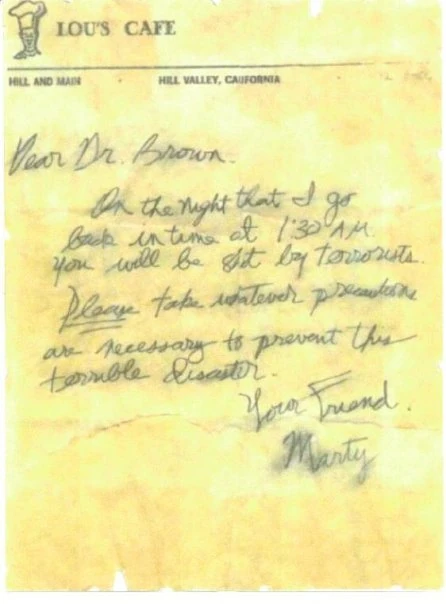 LOU'S CAFE
HILL AND MAIN HILL VALLEY, CALIFORNIA
Dear Dr. Brown.
On the night that I go
back in time at 1:30 A.M.
you will be shot by terrorists.
Please take whatever precautions
are necessary to prevent this
terrible disaster.
Your Friend.
Marty